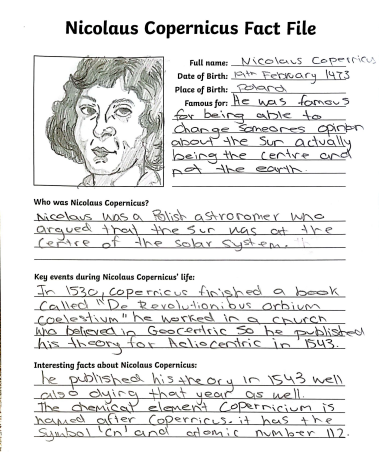 Nicolaus Copernicus Fact File
Full name: Nicolaus Copernicus
Date of Birth: 19th February 1473
Place of Birth: Poland
Famous for: He was famous
for being able to
change someones opinion
about the sun actually
being the centre and
not the earth.
Who was Nicolaus Copernicus?
Nicolaus was a Polish astronomer who
argued that the sun was at the
centre of the solar system.
Key events during Nicolaus Copernicus' life:
In 1530, copernicus finished a book
called "De Revolutionibus orbium
coelestium" he worked in a church
who believed in Geocentric so he published
his theory for Heliocentric in 1543.
Interesting facts about Nicolaus Copernicus:
he published his theory in 1543 well
also dying that year as well.
The chemical element Copernicium is
named after Copernicus. it has the
symbol 'Cn' and atomic number 112.